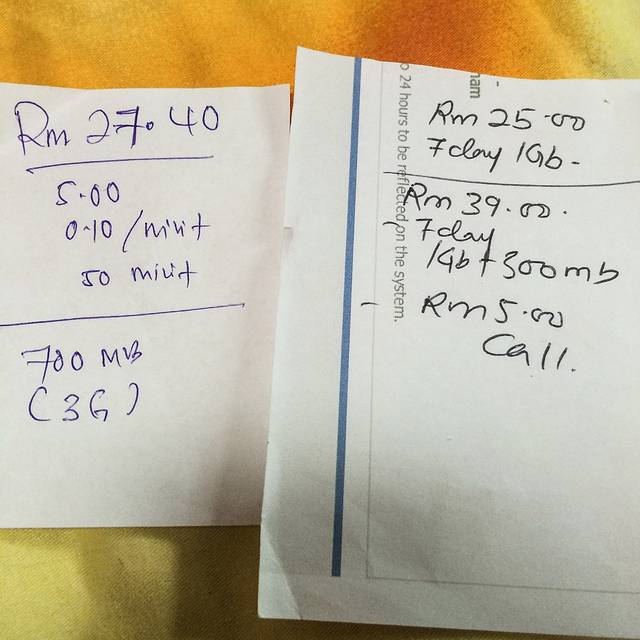 Rm 27.40
5.00
0.10/minit
50 minit
700 MB
(3G)
nam
o 24 hours to be reflected on the system.
Rm 25.00
7day 1Gb-
Rm 39.00.
- 7day
1Gb + 300mb
- Rm 5.00
Call.